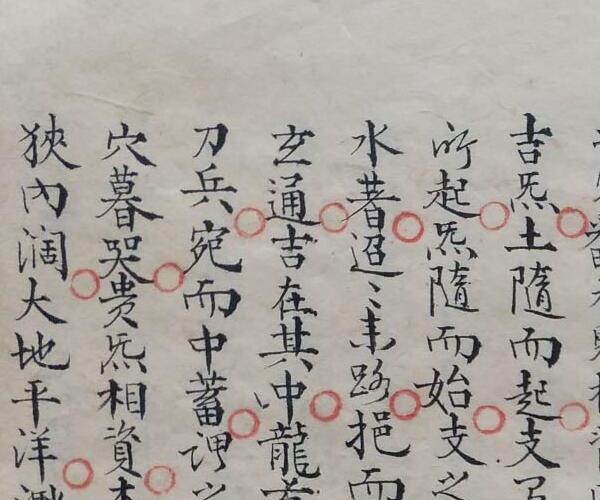 吉炁土隨而起支
所起炁隨而始支之
水著迢〻未路挹而
玄通吉在其中龍
刀兵宛而中蓄謂之
穴暮哭贵炁相資本
狹內濶大地平洋